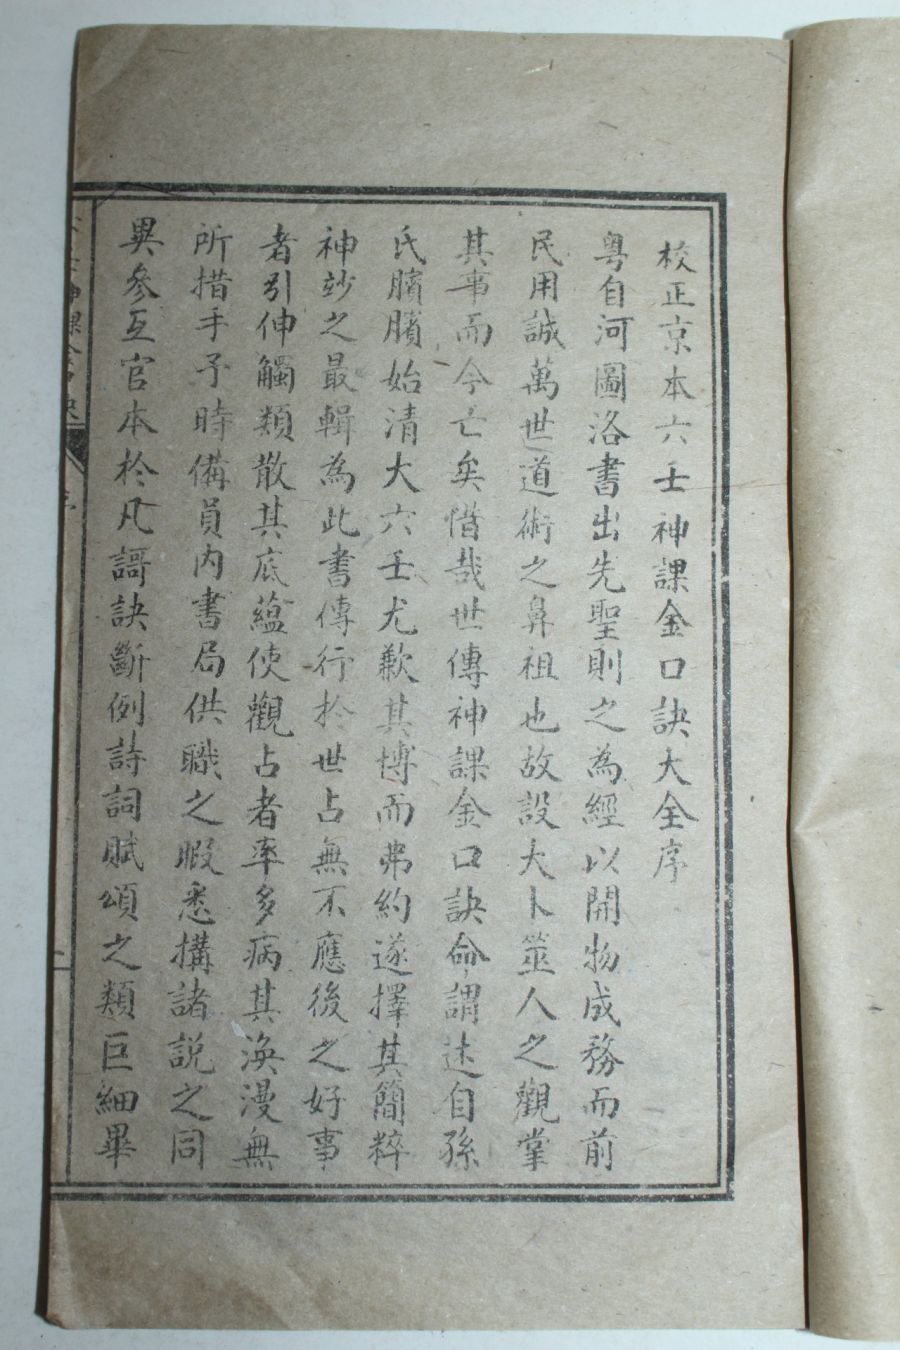 校正京本六壬神課金口訣大全序
粵自河圖洛書出先聖則之為經以開物成務而前
民用誠萬世道術之鼻祖也故設大卜筮人之觀掌
其事而今亡矣惜哉世傳神課金口訣命謂述自孫
氏臏臏始清大六壬尤歉其博而弗約遂擇其簡粹
神玅之最輯為此書傳行於世占無不應後之好事
者引伸觸類散其底蘊使觀占者率多病其渙漫無
所措手予時備員内書局供職之暇悉搆諸説之同
異參互官本於凡謌訣斷例詩詞賦頌之類巨細畢
神課金口訣